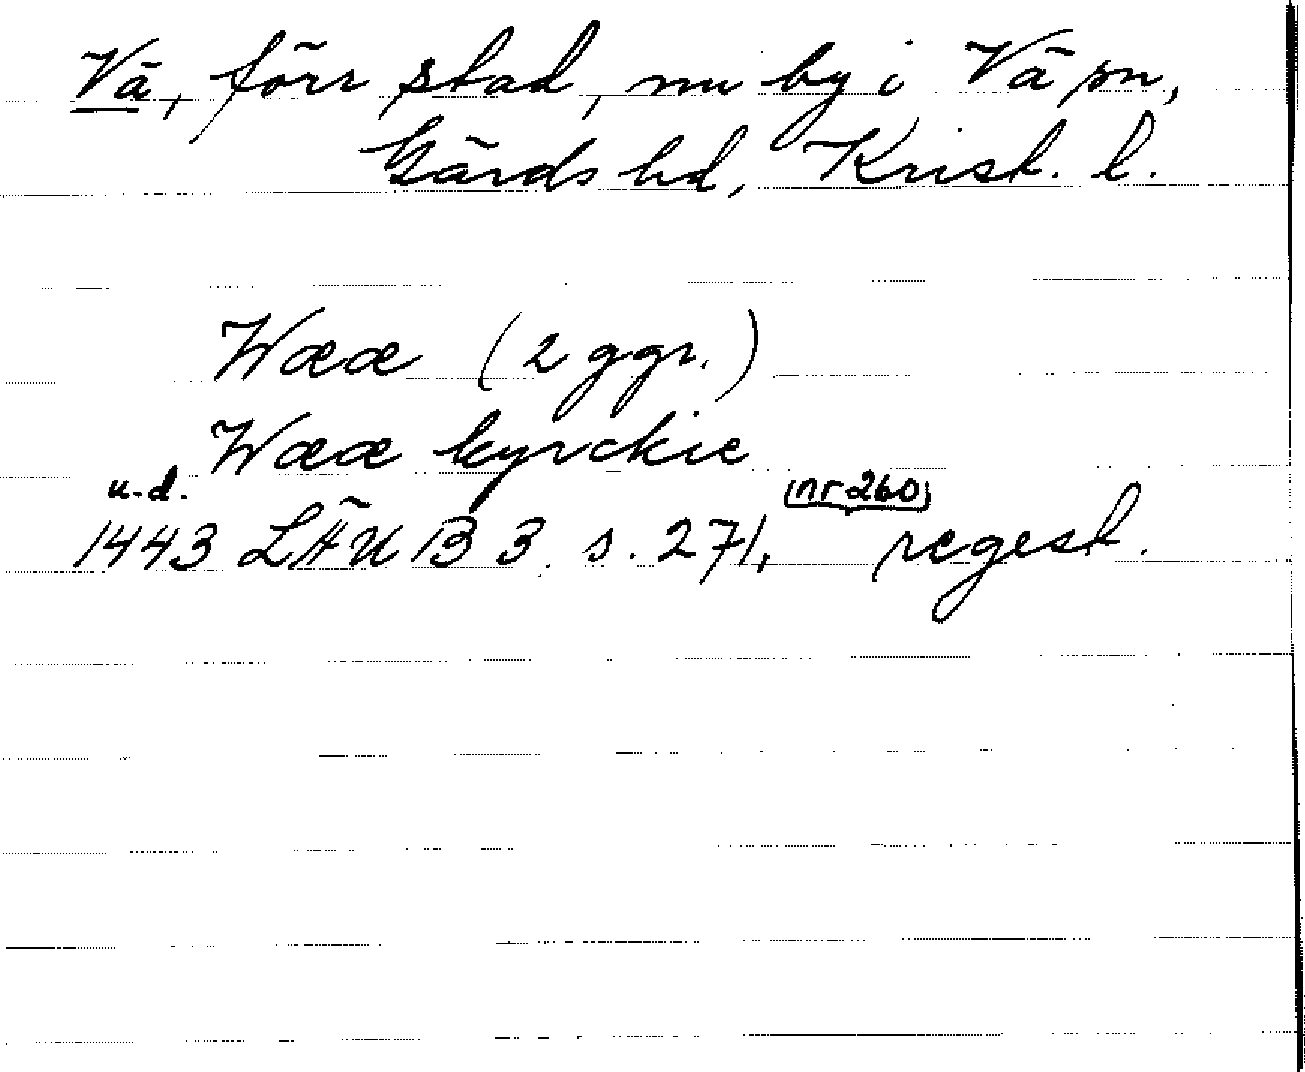 Vä, förr stad, nu by i Vä sn,
Gärds hd, Krist. l.
Wææ (2 ggr.)
Wææ kyrckie
u.d.
1443 LÄUB 3 s. 271, (nr 260) regest.